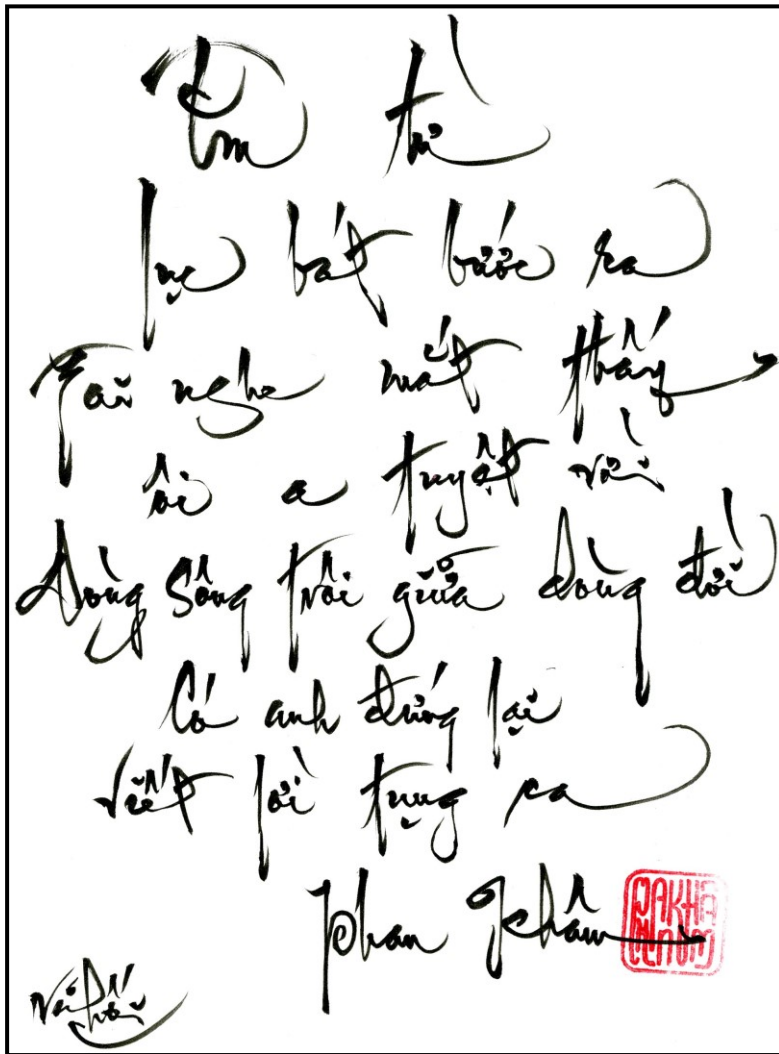 Em từ
lục bát bước ra
Tai nghe mắt thấy
ôi a tuyệt vời
Dòng sông trôi giữa dòng đời
Có anh đứng lại
viết lời tụng ca
Phan Khâm
Vũ Hối